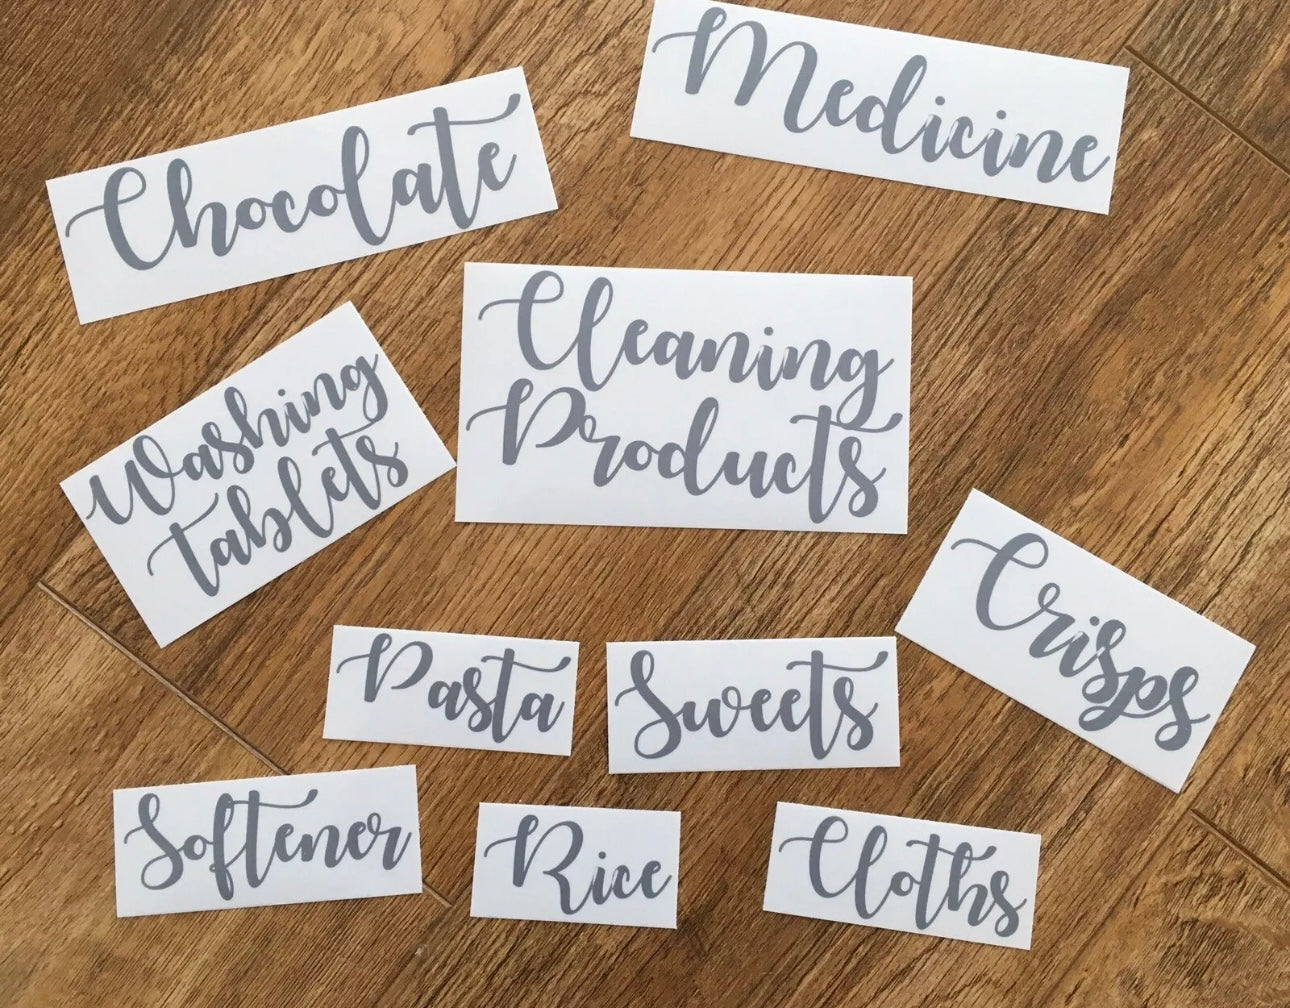 Medicine
Chocolate
Cleaning
Products
Washing
tablets
Crisps
Pasta
Sweets
Softener
Rice
Cloths